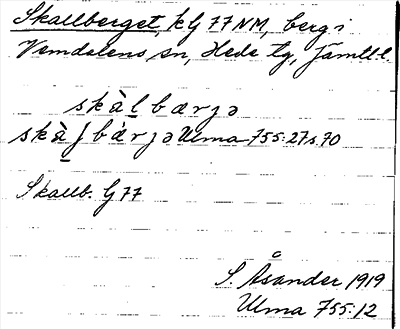 Skallberget, k G 77 NM, berg i
Vemdalens sn, Hede tg, Jämtl. l.
skàl bærjə
skàʃ bàrjə Ulma 755:27 s. 70
Skallb. G 77
S. Åsander 1919
Ulma 755:12